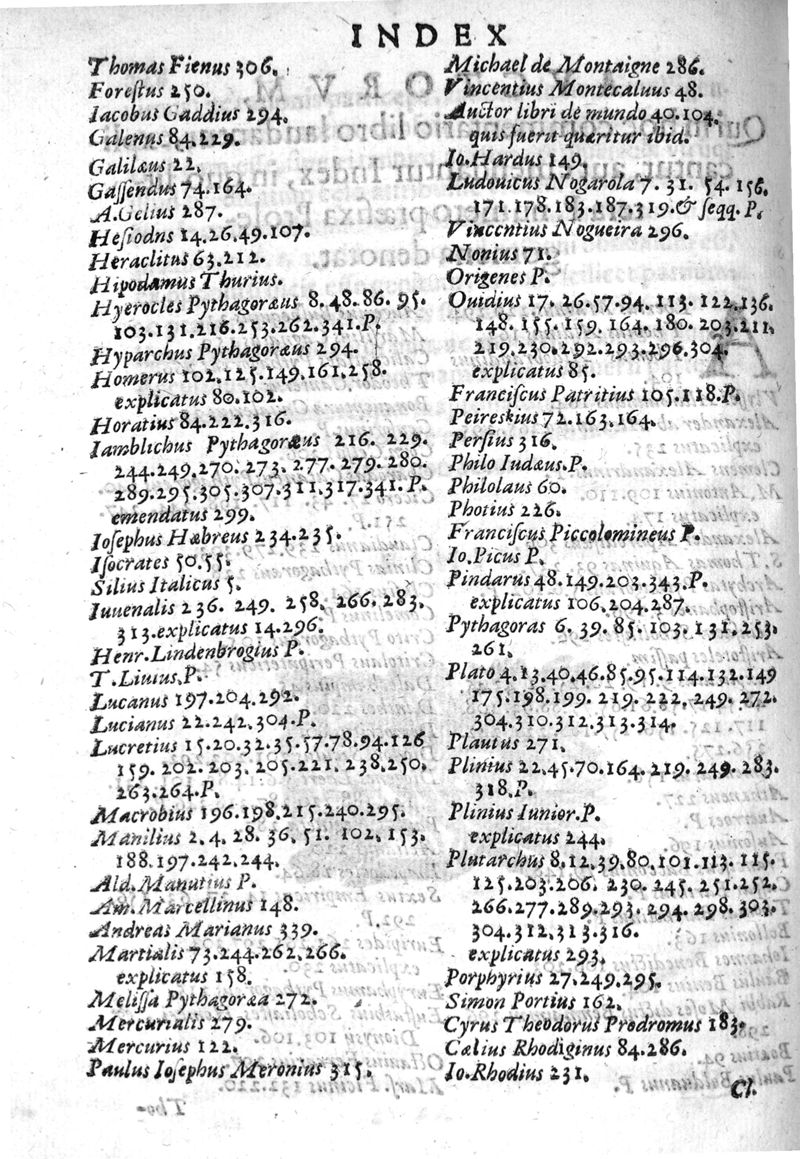 INDEX
Thomas Fienus 306.
Foreſtus 250.
Iacobus Gaddius 294.
Galenus 84.229.
Galilæus 22.
Gaſſendus 74.164.
A.Gelius 287.
Heſiodns 14.26.49.107.
Heraclitus 63.212.
Hipodamus Thurius.
Hyerocles Pythagoræus 8.48.86.95.
103.131.216.253.262.341.P.
Hyparchus Pythagoræus 294.
Homerus 102.125.149.161.258.
explicatus 80.102.
Horatius 84.222.316.
Iamblichus Pythagoræus 216. 229.
244.249.270.273.277.279.280.
289.295.305.307.311.317.341.P.
emendatus 299.
Ioſephus Hæbreus 234.235.
Iſocrates 50.55.
Silius Italicus 5.
Iuuenalis 236. 249. 258. 266. 283.
313.explicatus 14.296.
Henr.Lindenbrogius P.
T.Liuius.P.
Lucanus 197.204.292.
Lucianus 22.242.304.P.
Lucretius 15.20.32.35.57.78.94.126
159. 202. 203. 205.221. 238.250.
263.264.P.
Macrobius 196.198.215.240.295.
Manilius 2. 4. 28. 36. 51. 102. 153.
188.197.242.244.
Ald.Manutius P.
Am.Marcellinus 148.
Andreas Marianus 339.
Martialis 73.244.262.266.
explicatus 158.
Meliſſa Pythagoræa 272.
Mercurialis 279.
Mercurius 122.
Paulus Ioſephus Meronius 315.
Michael de Montaigne 286.
Vincentius Montecaluus 48.
Auctor libri de mundo 40.104.
quis fuerit quæritur ibid.
Io.Hardus 149.
Ludouicus Nogarola 7. 31. 54. 156.
171.178.183.187.319.& ſeqq. P.
Vinccntius Nogueira 296.
Nonius 71.
Origenes P.
Ouidius 17. 26.57.94. 113. 122.136.
148. 155. 159. 164. 180. 203.211.
219.230.292.293.296.304.
explicatus 85.
Franciſcus Patritius 105.118.P.
Peireskius 72.163.164.
Perſius 316.
Philo Iudæus.P.
Philolaus 60.
Photius 226.
Franciſcus Piccolomineus P.
Io.Picus P.
Pindarus 48.149.203.343.P.
explicatus 106.204.287.
Pythagoras 6. 39. 85. 103. 131.253.
261.
Plato 4.13.40.46.85.95.114.132.149
175.198.199. 219. 222. 249. 272.
304.310.312.313.314.
Plautus 271.
Plinius 22.45.70.164. 219. 249. 283.
318.P.
Plinius Iunior.P.
explicatus 244.
Plutarchus 8.12.39.80.101.113. 115.
125.203.206. 230. 245. 251.252.
266.277.289.293. 294. 298. 303.
304.312.313.316.
explicatus 293.
Porphyrius 27.249.295.
Simon Portius 162.
Cyrus Theodorus Prodromus 183.
Cælius Rhodiginus 84.286.
Io.Rhodius 231.
Cl.